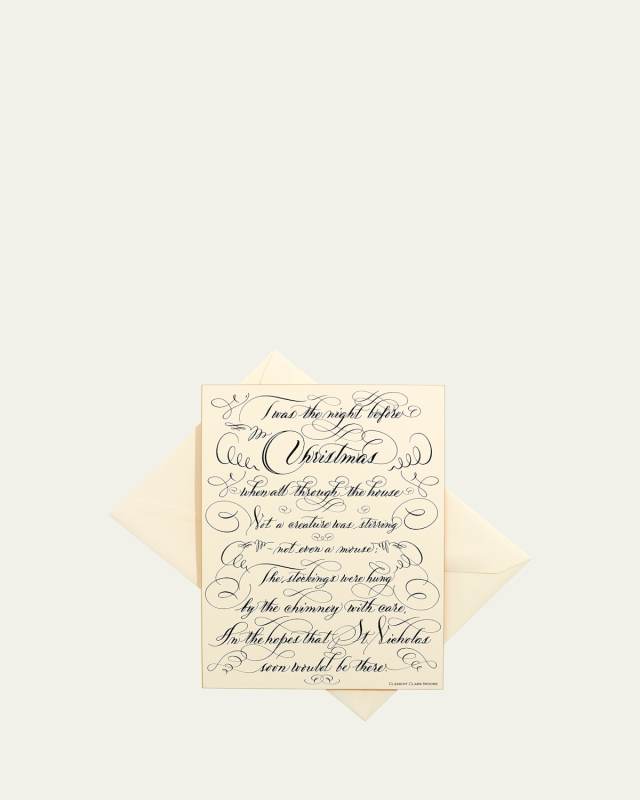 'Twas the night before
Christmas
when all through the house
Not a creature was stirring
not even a mouse;
The stockings were hung
by the chimney with care,
In the hopes that St. Nicholas
soon would be there.
CLEMENT CLARK MOORE